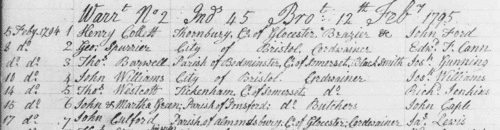 Warrt. No 2 Ind 45 Brot. 12th Feby 1795
5 Feby. 1794 1 Henry Collett Thornbury, C. of Glocester Brazier & John Ford
8 do. 2 Geo. Spurrier City of Bristol Cordwainer Edwd. T. Cann
do do. 3 Thos. Barwell Parish of Bedminster, C. of Somerset, Black Smith Jos. Gunning
10 do. 4 John Williams City of Bristol Cordwainer Jos. Williams
14 do. 5 Thos. Westcott Tickenham, C. of Somerset do. Richd. Jenkins
16 do. 6 John & Martha Green, Parish of Butchers John Caple
17 do. 7 John Parish of Almondsbury, C. of Glocester, Cordwainer Jas. Lewis